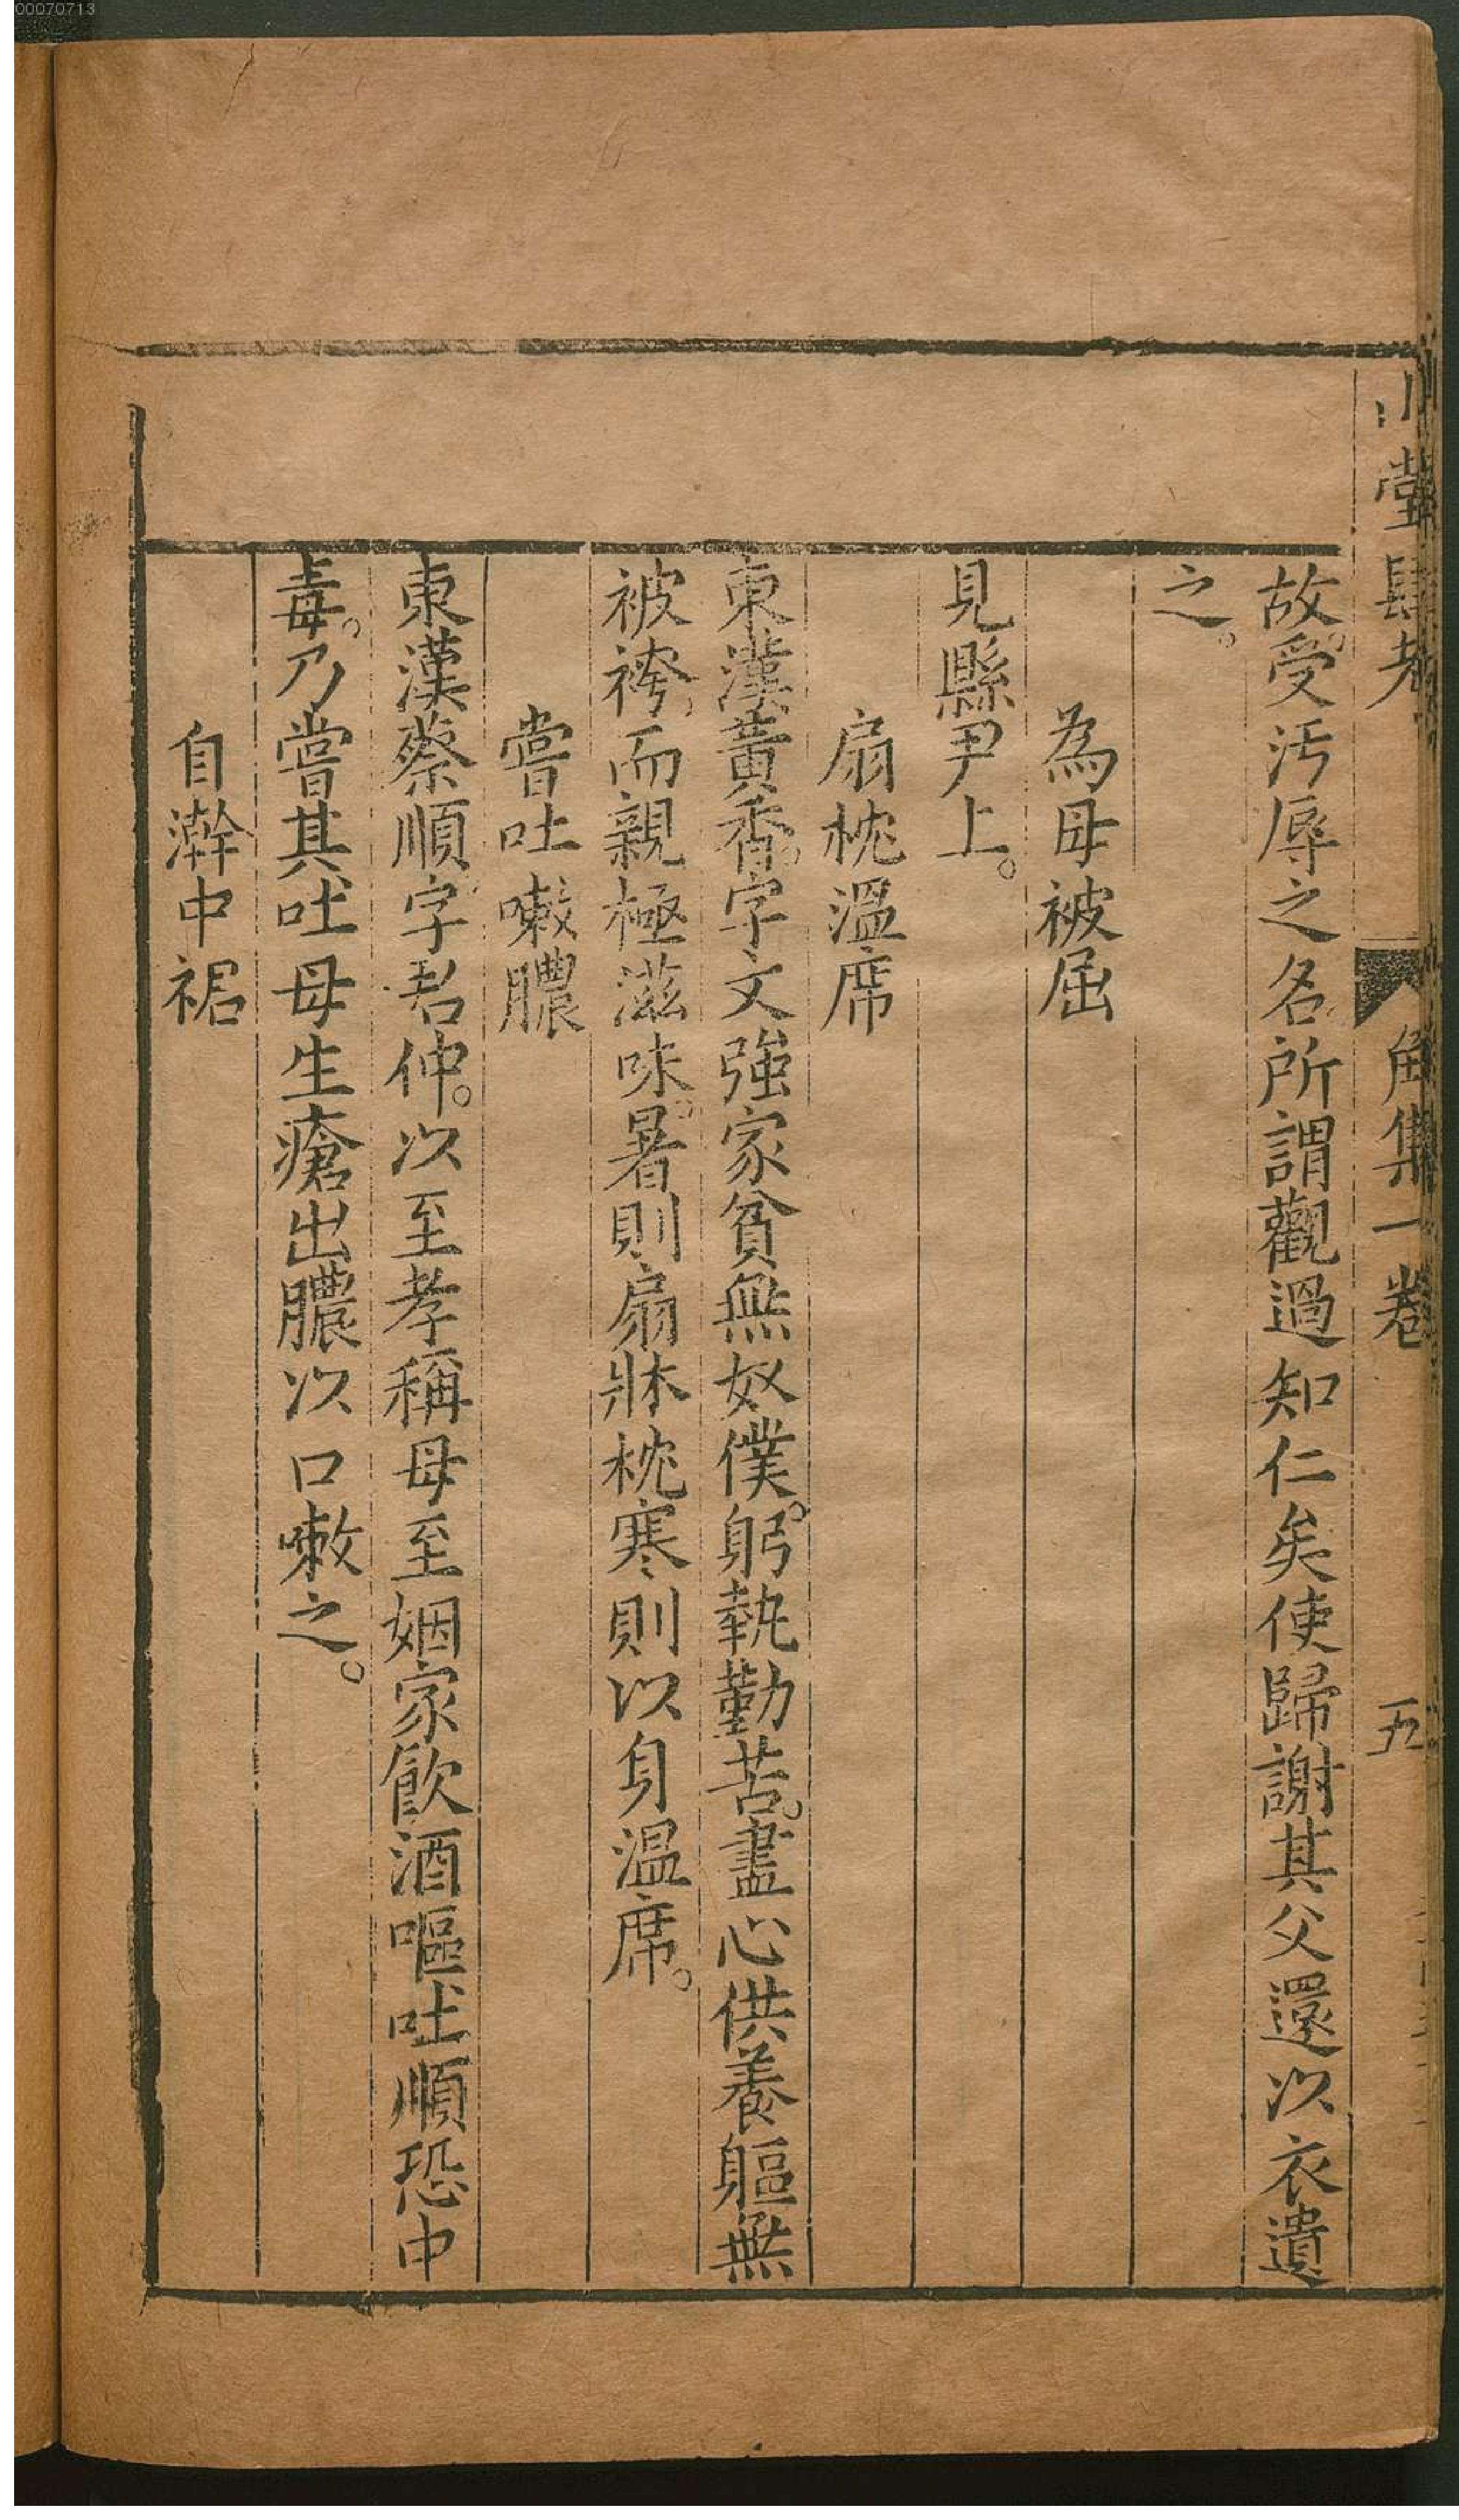 00070713
小堂肆考　角集一卷　五
故受汚辱之名所謂觀過知仁矣使歸謝其父還以衣遺
之。
為母被屈
見縣尹上。
扇枕溫席
東漢黃香。字文強家貧無奴僕。躬執勤苦。盡心供養軀無
被袴而親極滋味。暑則扇牀枕寒則以身溫席。
嘗吐嗽膿
東漢蔡順字君仲。以至孝稱母至姻家飲酒嘔吐順恐中
毒。乃嘗其吐母生瘡出膿以口嗽之。
自澣中裙